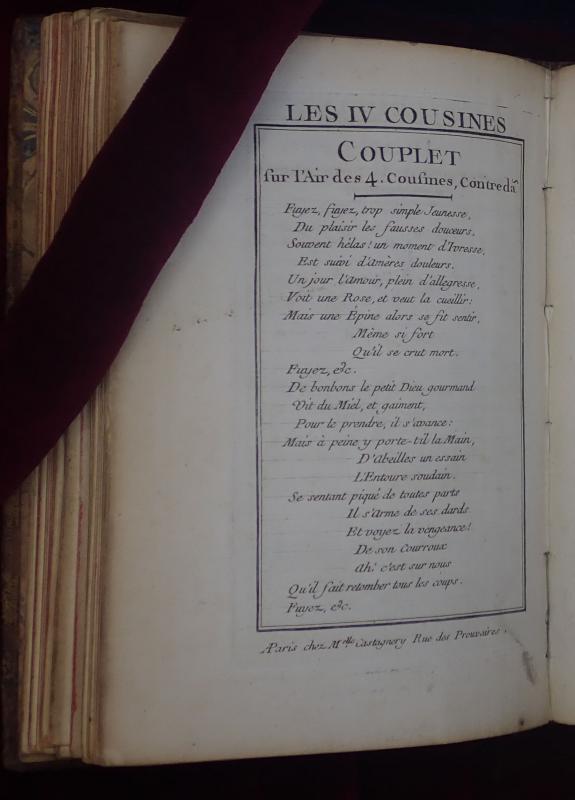 LES IV COUSINES
COUPLET
sur l'Air des 4. Cousines, Contreda.^s
Fuyez, fuyez, trop simple Jeunesse,
Du plaisir les fausses douceurs.
Souvent hélas! un moment d'Ivresse,
Est suivi d'amères douleurs.
Un jour l'amour, plein d'allegresse,
Voit une Rose, et veut la cueillir:
Mais une Épine alors se fit sentir,
Même si fort
Qu'il se crut mort.
Fuyez, &c.
De bonbons le petit Dieu gourmand
Vit du Miel, et gaiment,
Pour le prendre, il s'avance:
Mais à peine y porte-t'il la Main,
D'Abeilles un essain
L'Entoure soudain.
Se sentant piqué de toutes parts
Il s'arme de ses dards
Et voyez la vengeance!
De son Courroux
Ah! c'est sur nous
Qu'il fait retomber tous les coups.
Fuyez, &c.
A Paris chez M^elle Castagnery Rue des Prouvaires.